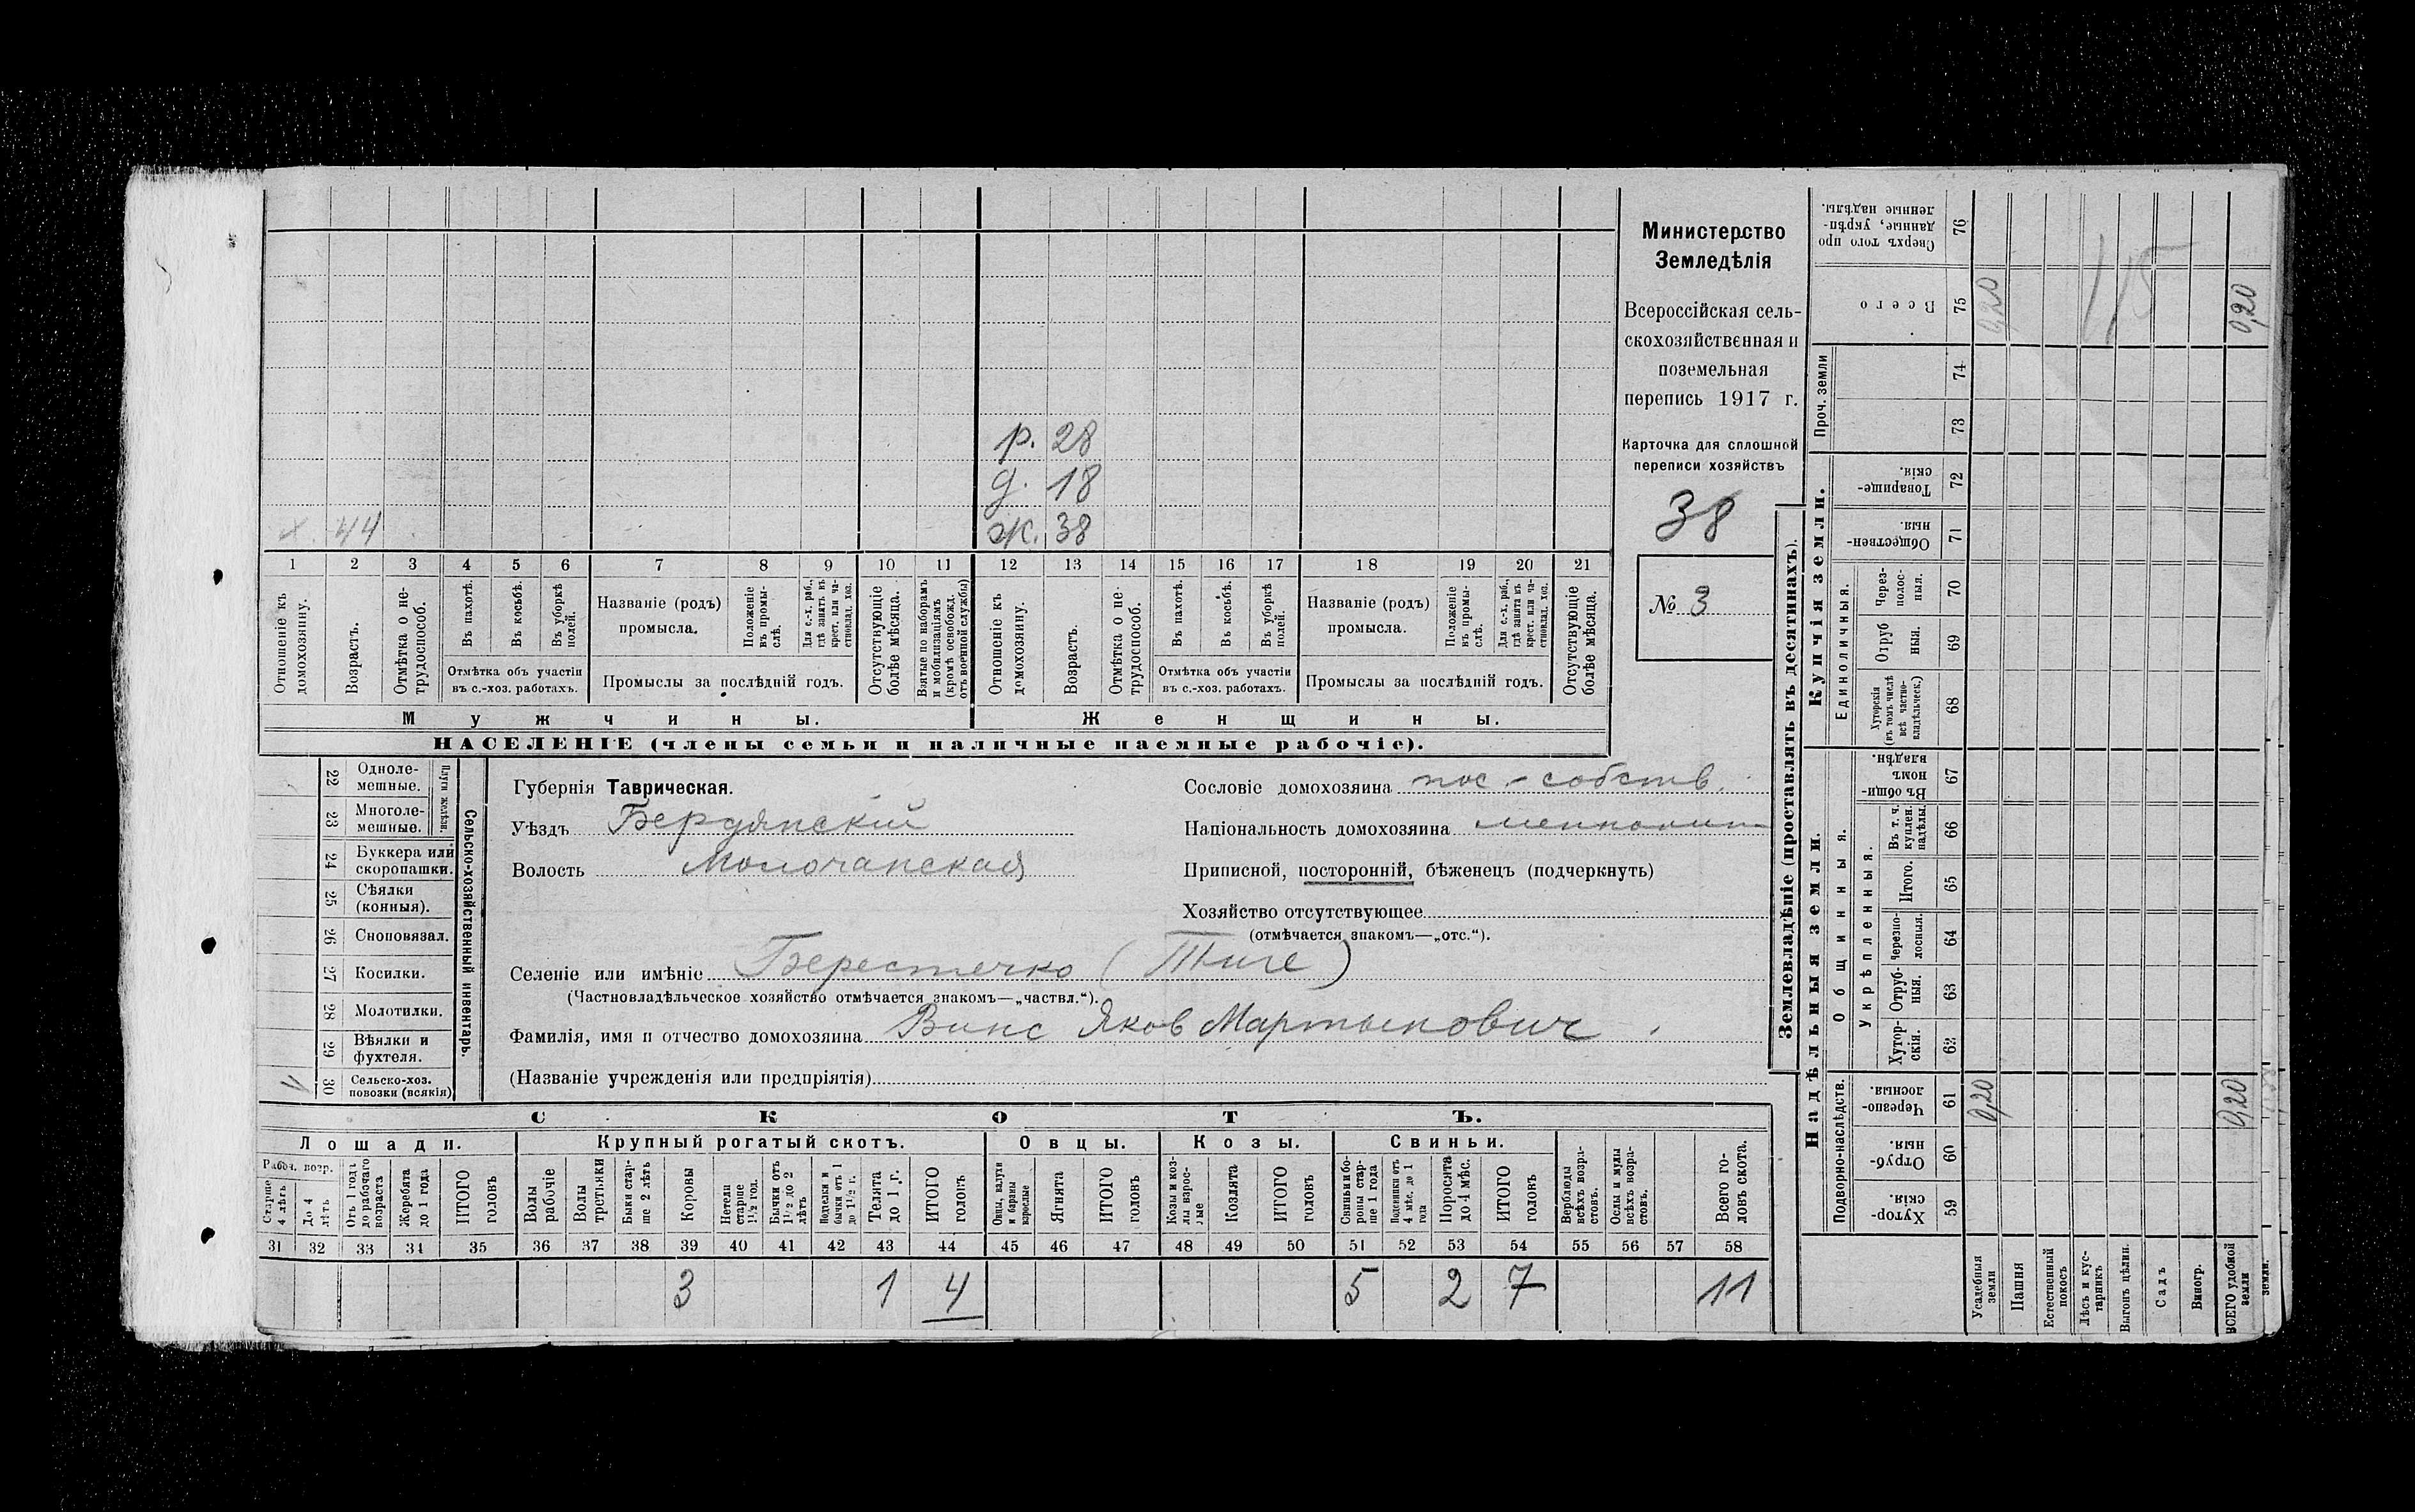 Министерство
Земледѣлія
Всероссійская сель-
скохозяйственная и
поземельная
перепись 1917 г.
Карточка для сплошной
переписи хозяйствъ
38
№ 3
р. 28
д. 18
х. 44
ж. 38
1 2 3 4 5 6 7 8 9 10 11 12 13 14 15 16 17 18 19 20 21
Отношеніе къ домохозяину.
Возрастъ.
Отмѣтка о не-трудоспособ.
Въ пахотѣ.
Въ косьбѣ.
Въ уборкѣ полей.
Отмѣтка объ участіи въ с.-хоз. работахъ.
Названіе (родъ) промысла.
Положеніе въ промы-слѣ.
Для с.-х. раб., гдѣ занятъ въ крест. или ча-стновлад. хоз.
Промыслы за послѣдній годъ.
Отсутствующіе болѣе мѣсяца.
Взятые по наборамъ и мобилизаціямъ (кромѣ освобожд. отъ военной службы)
Отношеніе къ домохозяину.
Возрастъ.
Отмѣтка о не-трудоспособ.
Въ пахотѣ.
Въ косьбѣ.
Въ уборкѣ полей.
Отмѣтка объ участіи въ с.-хоз. работахъ.
Названіе (родъ) промысла.
Положеніе въ промы-слѣ.
Для с.-х. раб., гдѣ занята въ крест. или ча-стновлад. хоз.
Промыслы за послѣдній годъ.
Отсутствующіе болѣе мѣсяца.
Мужчины.
Женщины.
НАСЕЛЕНІЕ (члены семьи и наличные наемные рабочіе).
Сельско-хозяйственный инвентарь.
Плуги желѣзн.
22 Одноле-мешные.
23 Многоле-мешные.
24 Буккера или скоропашки.
25 Сѣялки (конныя).
26 Сноповязал.
27 Косилки.
28 Молотилки.
29 Вѣялки и фухтеля.
30 Сельско-хоз. повозки (всякія)
Губернія Таврическая.
Уѣздъ Бердянскій
Волость Молочанская
Сословіе домохозяина пос-собств.
Національность домохозяина меннонит
Приписной, посторонній, бѣженецъ (подчеркнуть)
Хозяйство отсутствующее
(отмѣчается знакомъ—„отс.“).
Селеніе или имѣніе Берестечко (Тиге)
(Частновладѣльческое хозяйство отмѣчается знакомъ—„частвл.“).
Фамилія, имя и отчество домохозяина Винс Яков Мартынович
(Названіе учрежденія или предпріятія)
СКОТЪ.
Лошади. Крупный рогатый скотъ. Овцы. Козы. Свиньи.
Рабоч. возр.
Старше 4 лѣтъ
До 4 лѣтъ
Отъ 1 года до рабочаго возраста
Жеребята до 1 года
ИТОГО головъ
Волы рабочіе
Волы третьяки
Быки стар-ше 2 лѣтъ
Коровы
Нетели старше 1½ год.
Бычки отъ 1½ до 2 лѣтъ
Подтелки и бычки отъ 1 до 1½ г.
Телята до 1 г.
ИТОГО головъ
Овцы, валухи и бараны взрослые
Ягнята
ИТОГО головъ
Козы и коз-лы взрос-лые
Козлята
ИТОГО головъ
Свиньи и бо-ровы стар-ше 1 года
Подсвинки отъ 4 мѣс. до 1 года
Поросята до 4 мѣс.
ИТОГО головъ
Верблюды всѣхъ возра-стовъ.
Ослы и мулы всѣхъ возра-стовъ.
Всего го-ловъ скота.
31 32 33 34 35 36 37 38 39 40 41 42 43 44 45 46 47 48 49 50 51 52 53 54 55 56 57 58
3 1 4 5 2 7 11
Землевладѣніе (проставлять въ десятинахъ).
Купчія земли.
Надѣльныя земли.
Проч. земли
Сверхъ того про-данные, укрѣп-ленные надѣлы.
76
Всего
75
74
73
Товарище-скія.
72
Обществен-ныя.
71
Единоличныя.
Через-полос-ныя.
70
Отруб-ныя.
69
Хуторскія (въ томъ числѣ всѣ частно-владѣльческ.)
68
Общинныя.
Въ общи-номъ владѣн.
67
Укрѣпленныя.
Въ т. ч. куплен. надѣлы.
66
Итого.
65
Черезпо-лосныя.
64
Отруб-ныя.
63
Хутор-скія.
62
Подворно-наслѣдств.
Черезпо-лосныя.
61
Отруб-ныя.
60
Хутор-скія.
59
Усадебныя земли
Пашня
Естественный покосъ
Лѣсъ и кус-тарникъ
Выгонъ цѣлин.
Садъ
Виногр.
ВСЕГО удобной земли
земли.
0,20
0,20
0,20
0,20